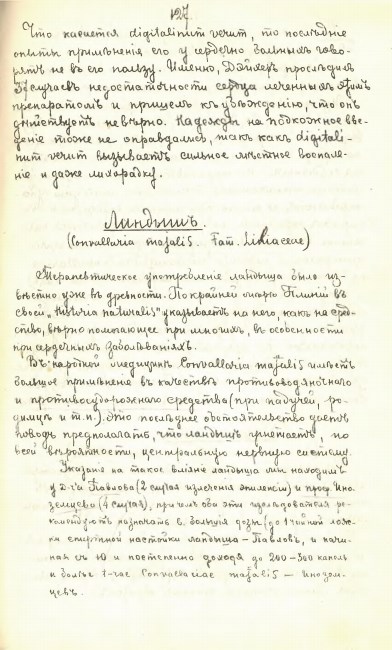 127.
Что касается digitalinum verum, то последнiе
опыты примѣненiя его у сердечно больныхъ гово-
рятъ не въ его пользу. Именно, Дэйхеръ прослѣдилъ
случаевъ недостаточности сердца леченныхъ этимъ
препаратомъ и пришелъ къ убѣжденiю, что онъ
дѣйствуетъ невѣрно. Надежды на подкожное вве-
денiе тоже не оправдались, такъ какъ digitali-
num verum вызываетъ сильное мѣстное воспале-
нiе и даже лихорадку.
Ландышъ.
(Convallaria majalis. Fam. Liliaceae)
Терапевтическое употребленiе ландыша было из-
вѣстно уже въ древности. По крайней мѣрѣ Плинiй въ
своей „Historia naturalis" указываетъ на него, какъ на сред-
ство, вѣрно помогающее при многихъ, въ особенности
при сердечныхъ заболѣванiяхъ.
Въ народной медицинѣ Convallaria majalis имѣетъ
большое примѣненiе въ качествѣ противоводяночнаго
и противосудорожнаго средства (при падучей, ро-
димцѣ и т.п.). Это послѣднее обстоятельство даетъ
поводъ предполагать, что ландышъ угнетаетъ, по
всей вѣроятности, центральную нервную систему.
Указанiе на такое влiянiе ландыша мы находимъ
у д-ра Павлова (2 случая излеченiя эпилепсiи) и проф. Ино-
земцева (4 случая), причемъ оба эти изслѣдователя ре-
комендуютъ назначать б. большiя дозы: до 1 чайной лож-
ки спиртной настойки ландыша – Павловъ, и начи-
ная съ 10 и постепенно доходя до 200-300 капель
и болѣе t-rae Convallariae majalis – Инозем-
цевъ.